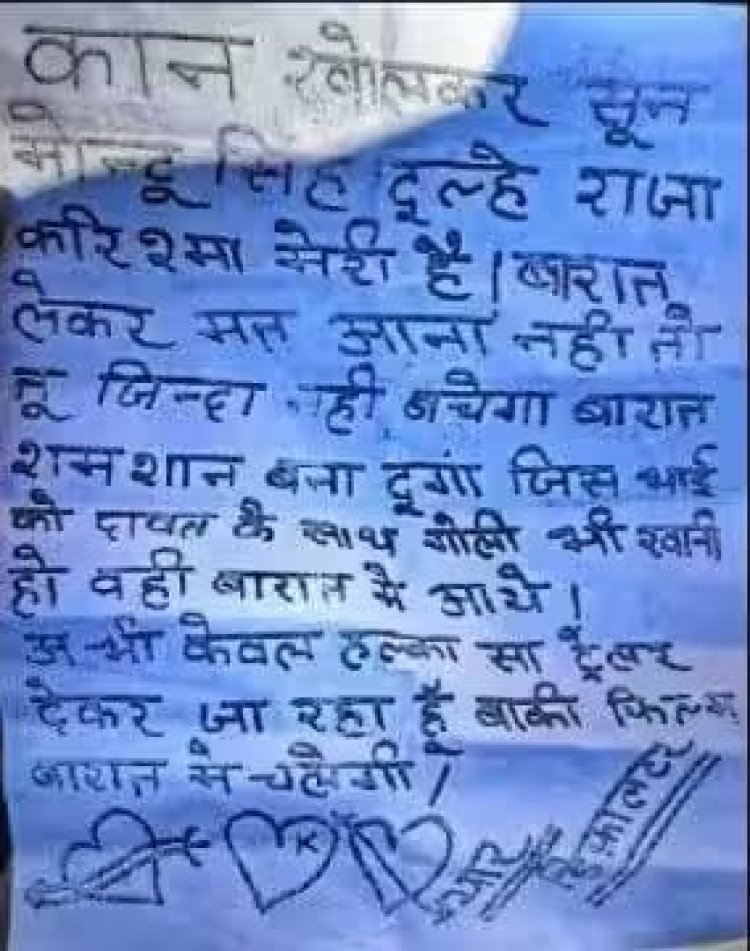 कान खोलकर सून
मोन्टू सिंह दूल्हे राजा
करिश्मा मेरी है। बारात
लेकर मत आना नही तो
तू जिन्दा नही बचेगा बारात
शमशान बना दूगां जिस भाई
को दावत के साथ गोली भी खानी
हो वही बारात मे आये।
अभी केवल हल्का सा ट्रेलर
देकर जा रहा हूँ बाकी फिल्म
बारात मे चलेगी।
K
प्यार